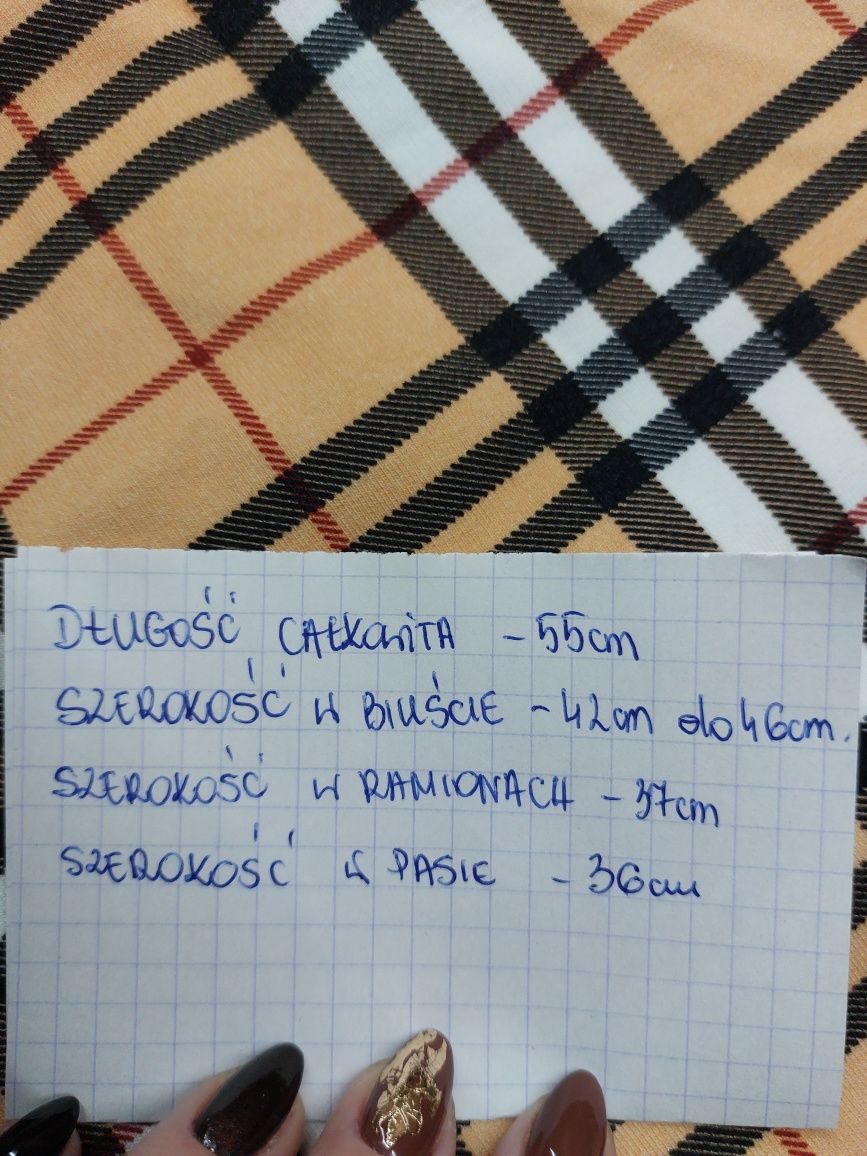 DŁUGOŚĆ CAŁKOWITA - 55cm
SZEROKOŚĆ W BIUŚCIE - 42cm do 46cm.
SZEROKOŚĆ W RAMIONACH - 37cm
SZEROKOŚĆ W PASIE - 36cm